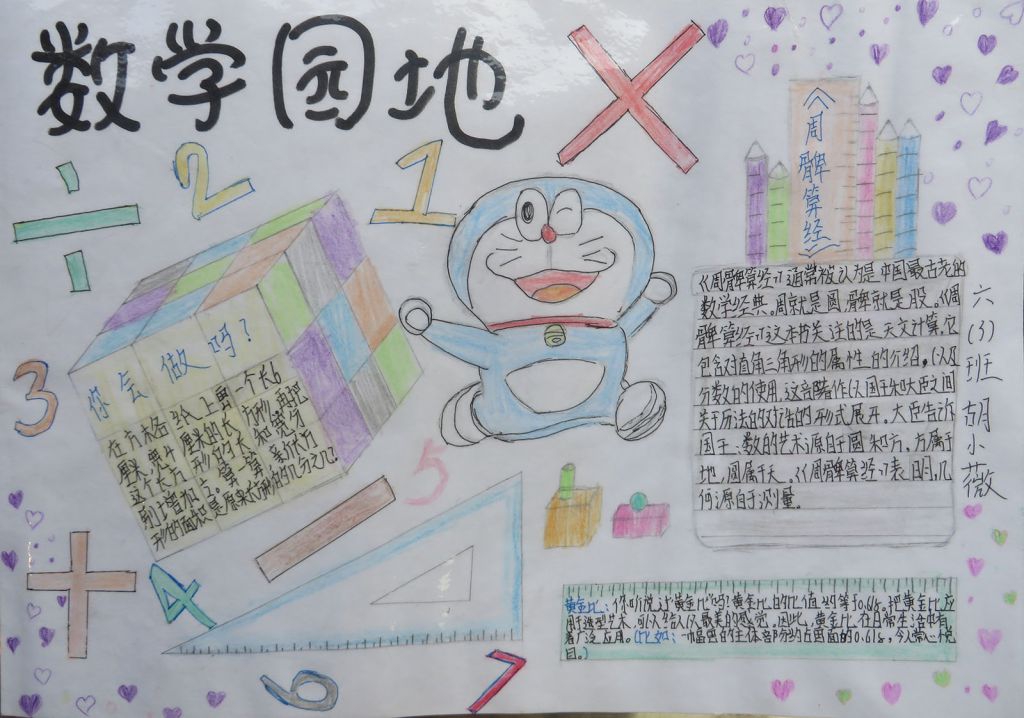 数学园地
÷
×
2
1
3
5
+
4
6
7
你会做吗?
在方格纸上画一个长6
厘米,宽4厘米的长方形,再把
这个长方形的长和宽分
别增加
形的面积是原来长方形的几分之几?
《周髀算经》
《周髀算经》通常被认为是中国最古老的
数学经典。周就是圆,髀就是股。《周
髀算经》这本书关注的是天文计算,它
包含对直角三角形的属性的介绍。以及
分数的使用。这部著作以国王和大臣之间
关于历法的对话的形式展开。大臣告诉
国王:数的艺术源自于圆和方,方属于
地,圆属于天。《周髀算经》表明,几
何源自于测量。
六(3)班 胡小薇
黄金比:你听说过"黄金比"吗?黄金比的比值约等于0.618。把黄金比应
用于造型艺术,可以给人以最美的感觉,因此,黄金比在日常生活中有
着广泛应用。(比如:一幅画的主体部分约占画面的0.618,令人赏心悦
目。)